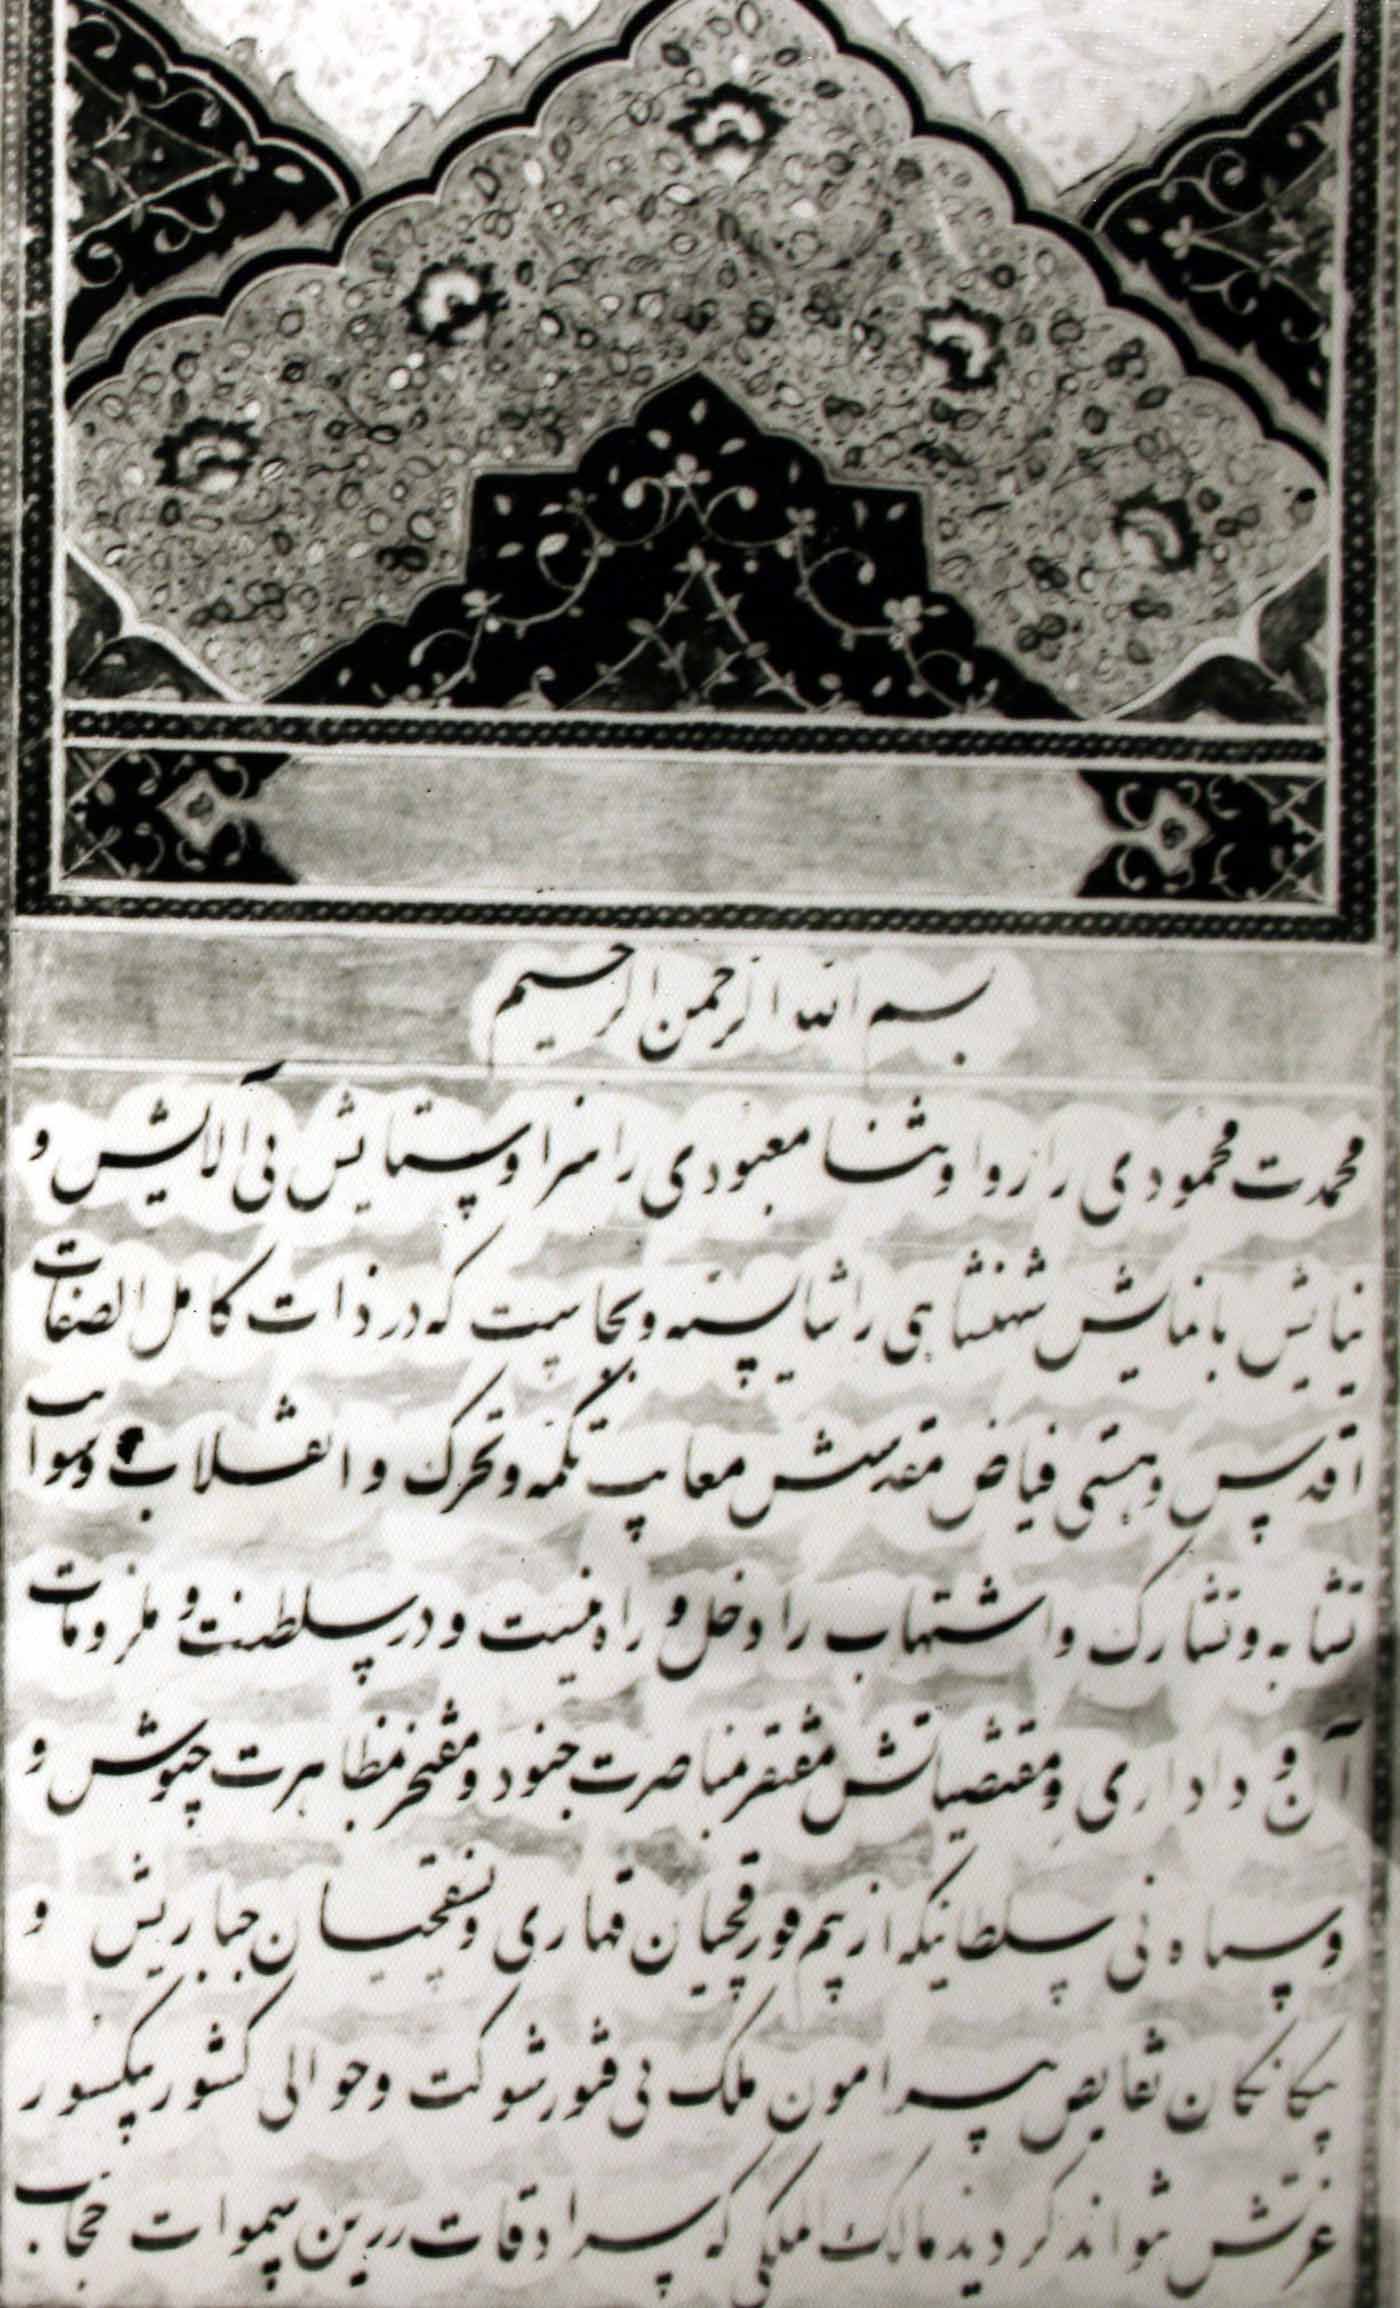 بسم الله الرحمن الرحیم
محمدت محمودی را روا و ثنا معبودی را سزا و ستایش بی آلایش و
نیایش با نمایش شهنشاهی را شایسته و بجاست که در ذات کامل الصفات
اقدس و هستی فیاض مقدسش معایب تکمه و تحرک و انقلاب و شواب
تشابه و تشارک و اشتهاب را دخل و راه نیست و در سلطنت و ملزومات
آن و داداری و مقتضیاتش مفتقر مناصرت جنود و مفتخر مظاهرت جیوش و
و سپاه نی سلطانیکه از بیم قورقچیان قهاری و نسقچیان جباریش و
بیکانکان نقایص پیرامون ملک بی فتور شوکت و حوالی کشور بیکسور
عزتش نتواند کردید مالک الملکی که سرادقات زرین سموات حجاب